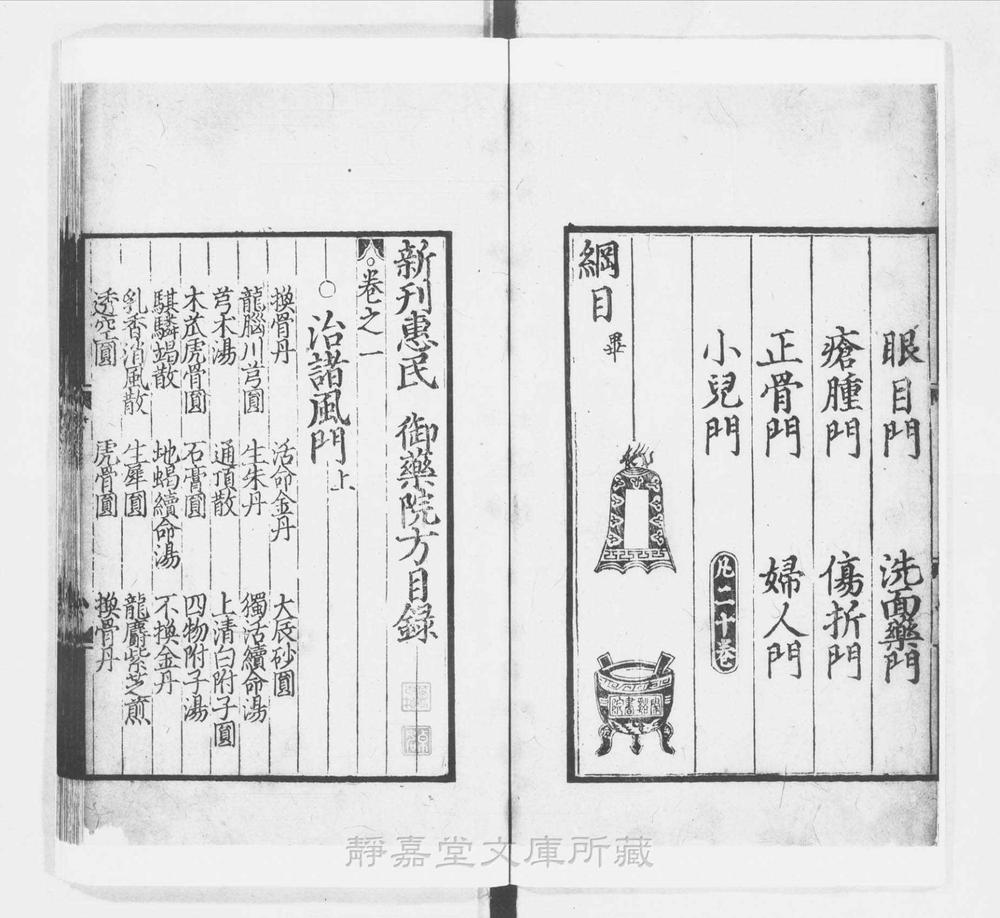 眼目門 洗面藥門
瘡腫門 傷折門
正骨門 婦人門
小兒門
凡二十卷
綱目畢
南谿書院
新刊惠民御藥院方目錄
卷之一
治諸風門上
換骨丹 活命金丹 大辰砂圓
龍腦川芎圓 生朱丹 獨活續命湯
芎朮湯 通頂散 上清白附子圓
木苽虎骨圓 石膏圓 四物附子湯
騏驎竭散 地蝎續命湯 不換金丹
乳香消風散 生犀圓 龍麝紫芝煎
透空圓 虎骨圓 換骨丹
靜嘉堂文庫所藏